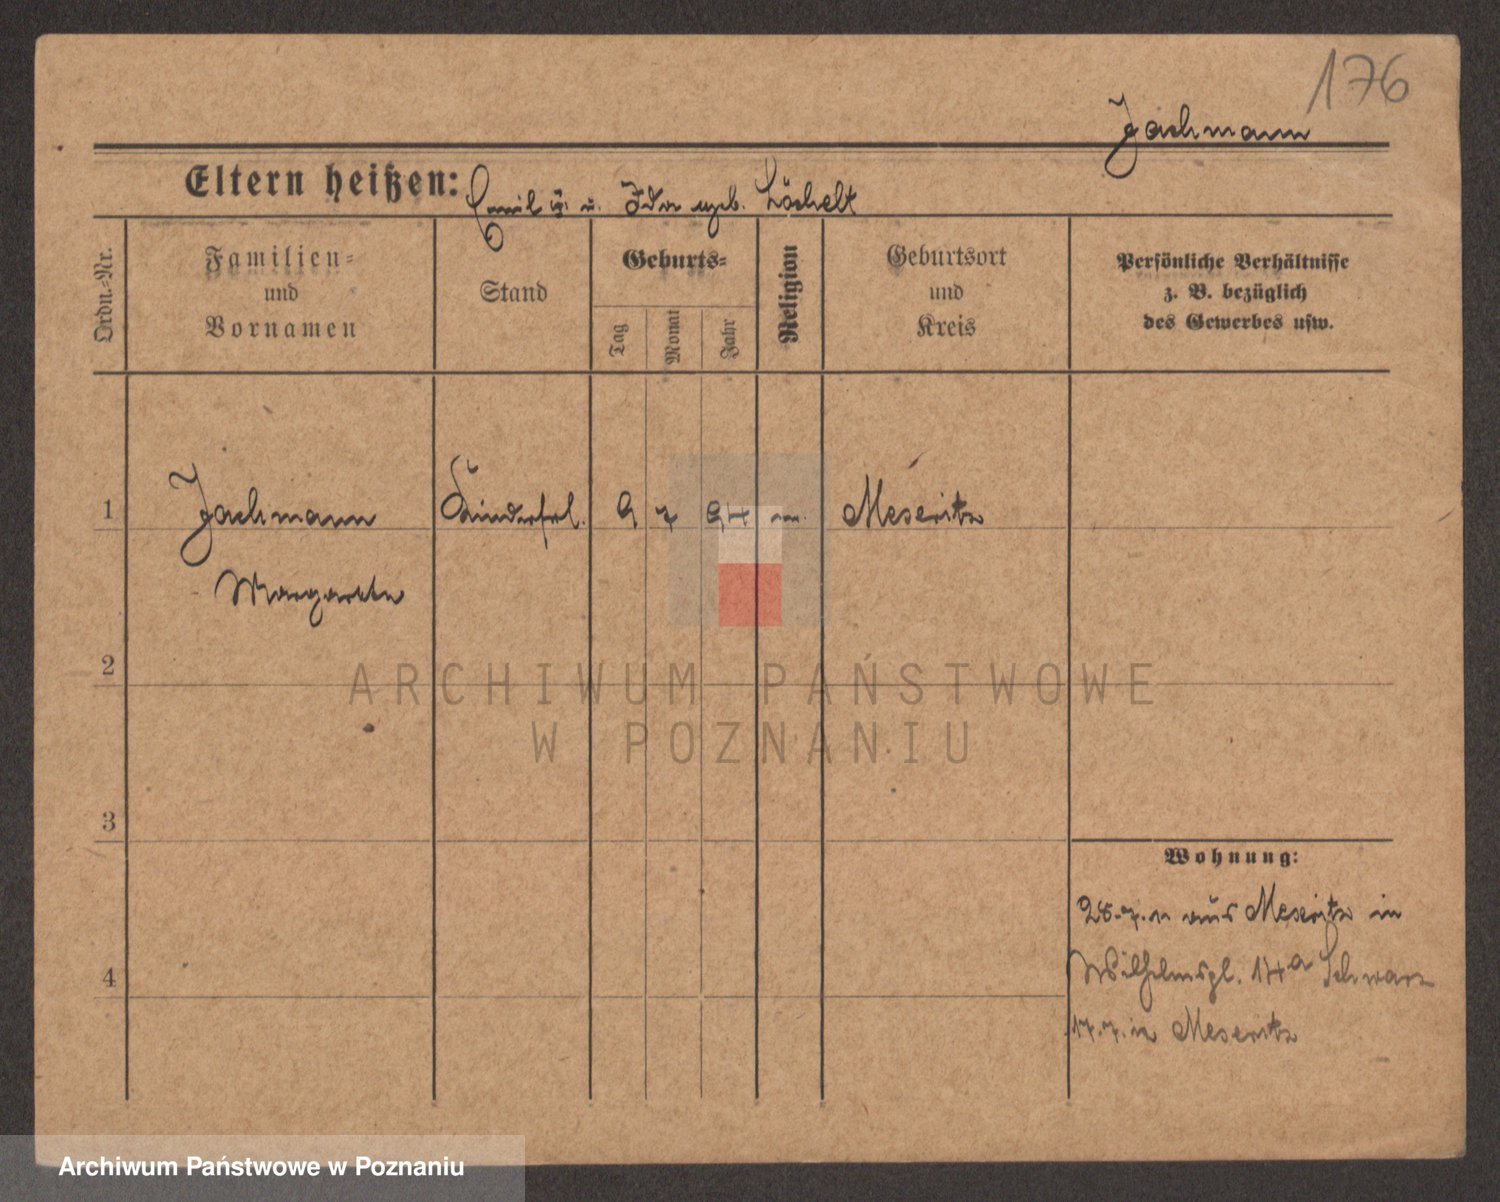 176
Jachmann
Eltern heißen: Emil J. u. Ida geb. Löchelt
Ordn.-Nr.
Familien-
und
Vornamen
Stand
Geburts-
Tag
Monat
Jahr
Religion
Geburtsort
und
Kreis
Persönliche Verhältnisse
z. B. bezüglich
des Gewerbes usw.
1 Jachmann Kinderfrl. 9 7 94 Meseritz
Margarete
2
3
4
Wohnung:
aus Meseritz in
Wilhelmspl. 14a Schwarz
17.7. in Meseritz
ARCHIWUM PAŃSTWOWE
W POZNANIU
Archiwum Państwowe w Poznaniu